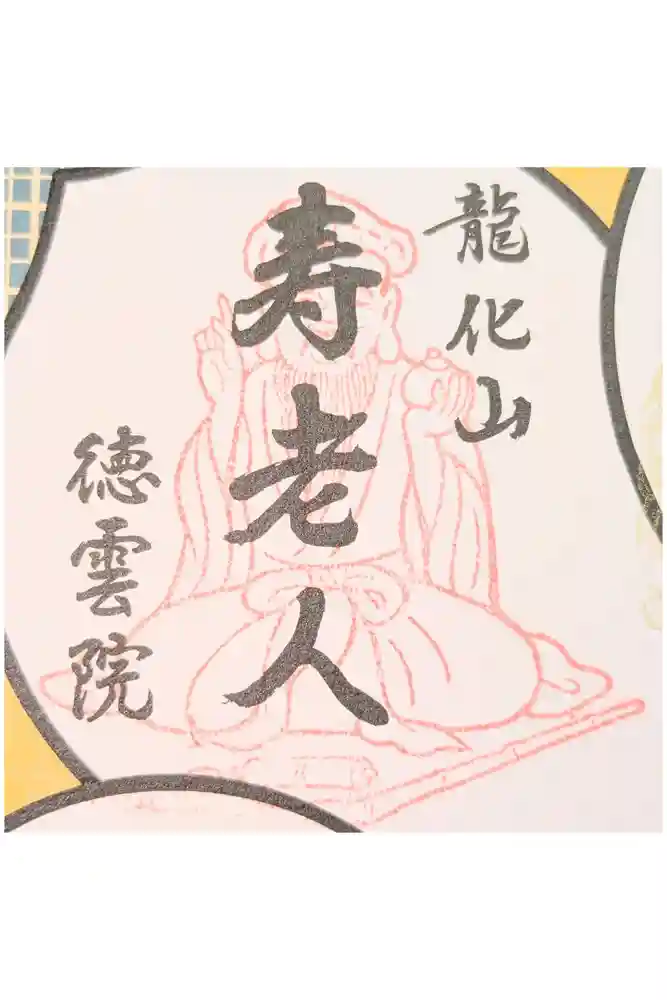 龍化山
寿老人
徳雲院